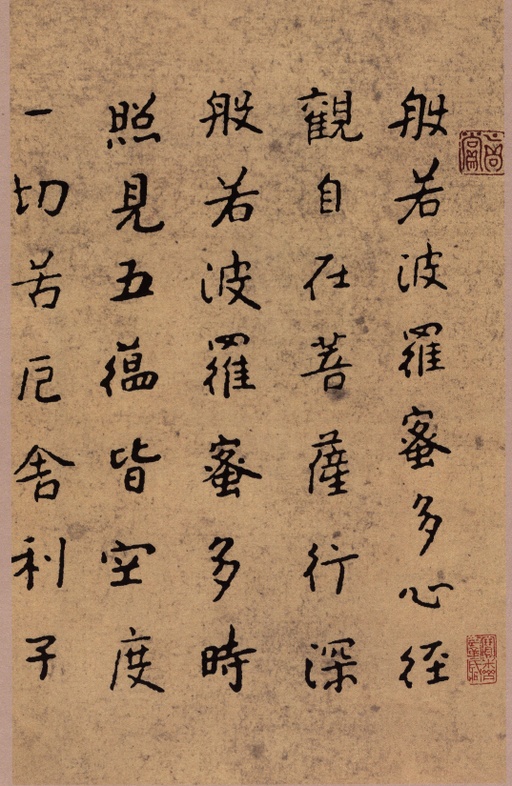 般若波羅蜜多心径
觀自在菩薩行深
般若波羅蜜多時
照見五蘊皆空度
一切苦厄舍利子